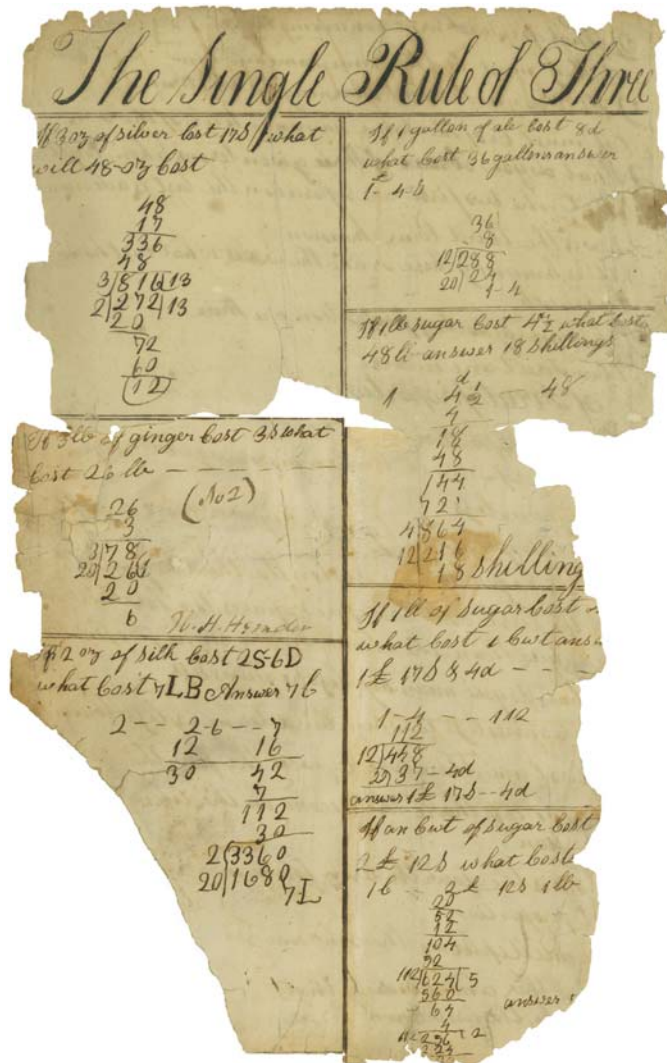 The Single Rule of Three
If 3 oz of silver Cost 17S what
will 48 oz Cost
48
17
336
48
3|816|13
2|272|13
20
72
60
12
If 3lb of ginger Cost 3S what
Cost 26 lb - - - -
(No 2)
26
3
3|78
20|26
20
6
If 2 oz of silk Cost 2S-6D
what Cost 7LB Answer 7
2 -- 2-6 --- 7
12 16
30 42
7
112
30
2|3360
20|1680
7L
If 1 gallon of ale Cost 8d
what Cost 36 gallons answer
1-4-
36
8
12|288
20|24
1-4
If 1lb sugar Cost 4½ what Cost
48 answer 18 shillings
d
1 4½ 48
4
18
48
144
72
4|864
12|216
18 shilling
If 1 of sugar Cost
what Cost 1 Cwt
1£ 17S & 4d - - -
1-4 --- 112
112
12|448
37-4d
answer 1£ 17S--4d
If an Cwt of sugar Cost
2£ 12S what Cost
2£ 12S 1lb
20
52
12
104
52
112|624|5
560
64
answer
4
256 2